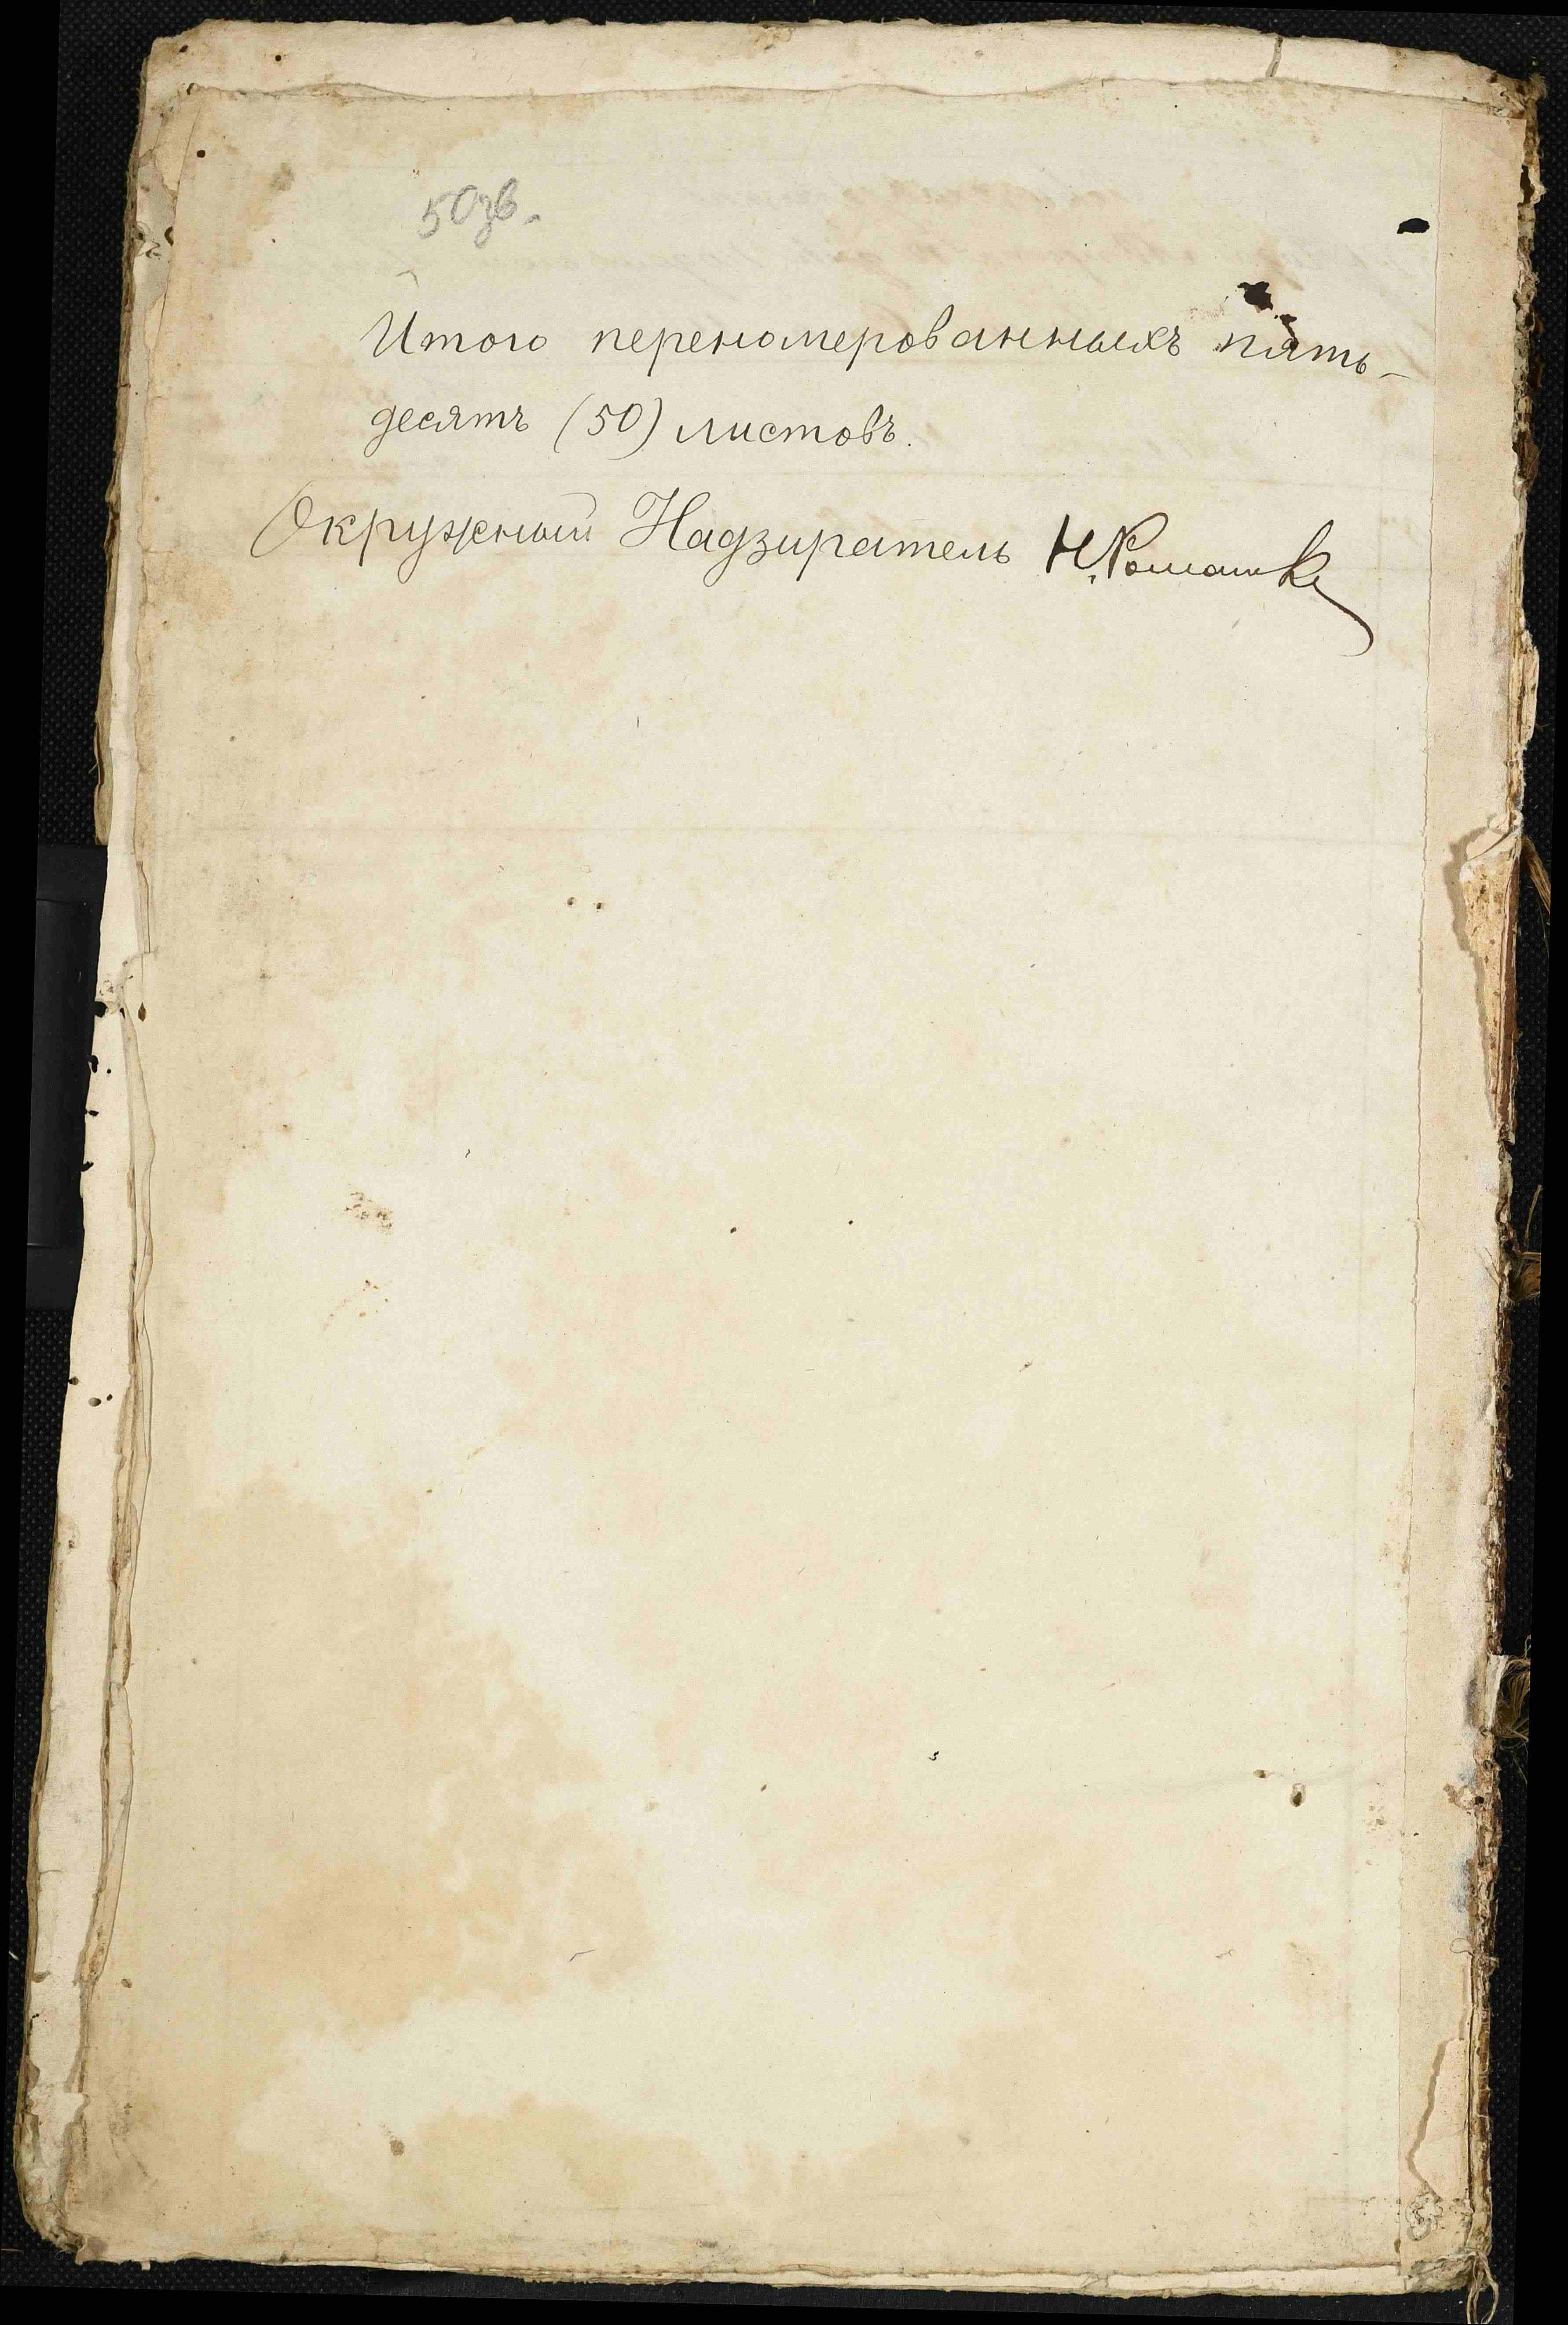 50зв.
Итого переномерованныхъ пять-
десятъ (50) листовъ.
Окружный Надзиратель Н.